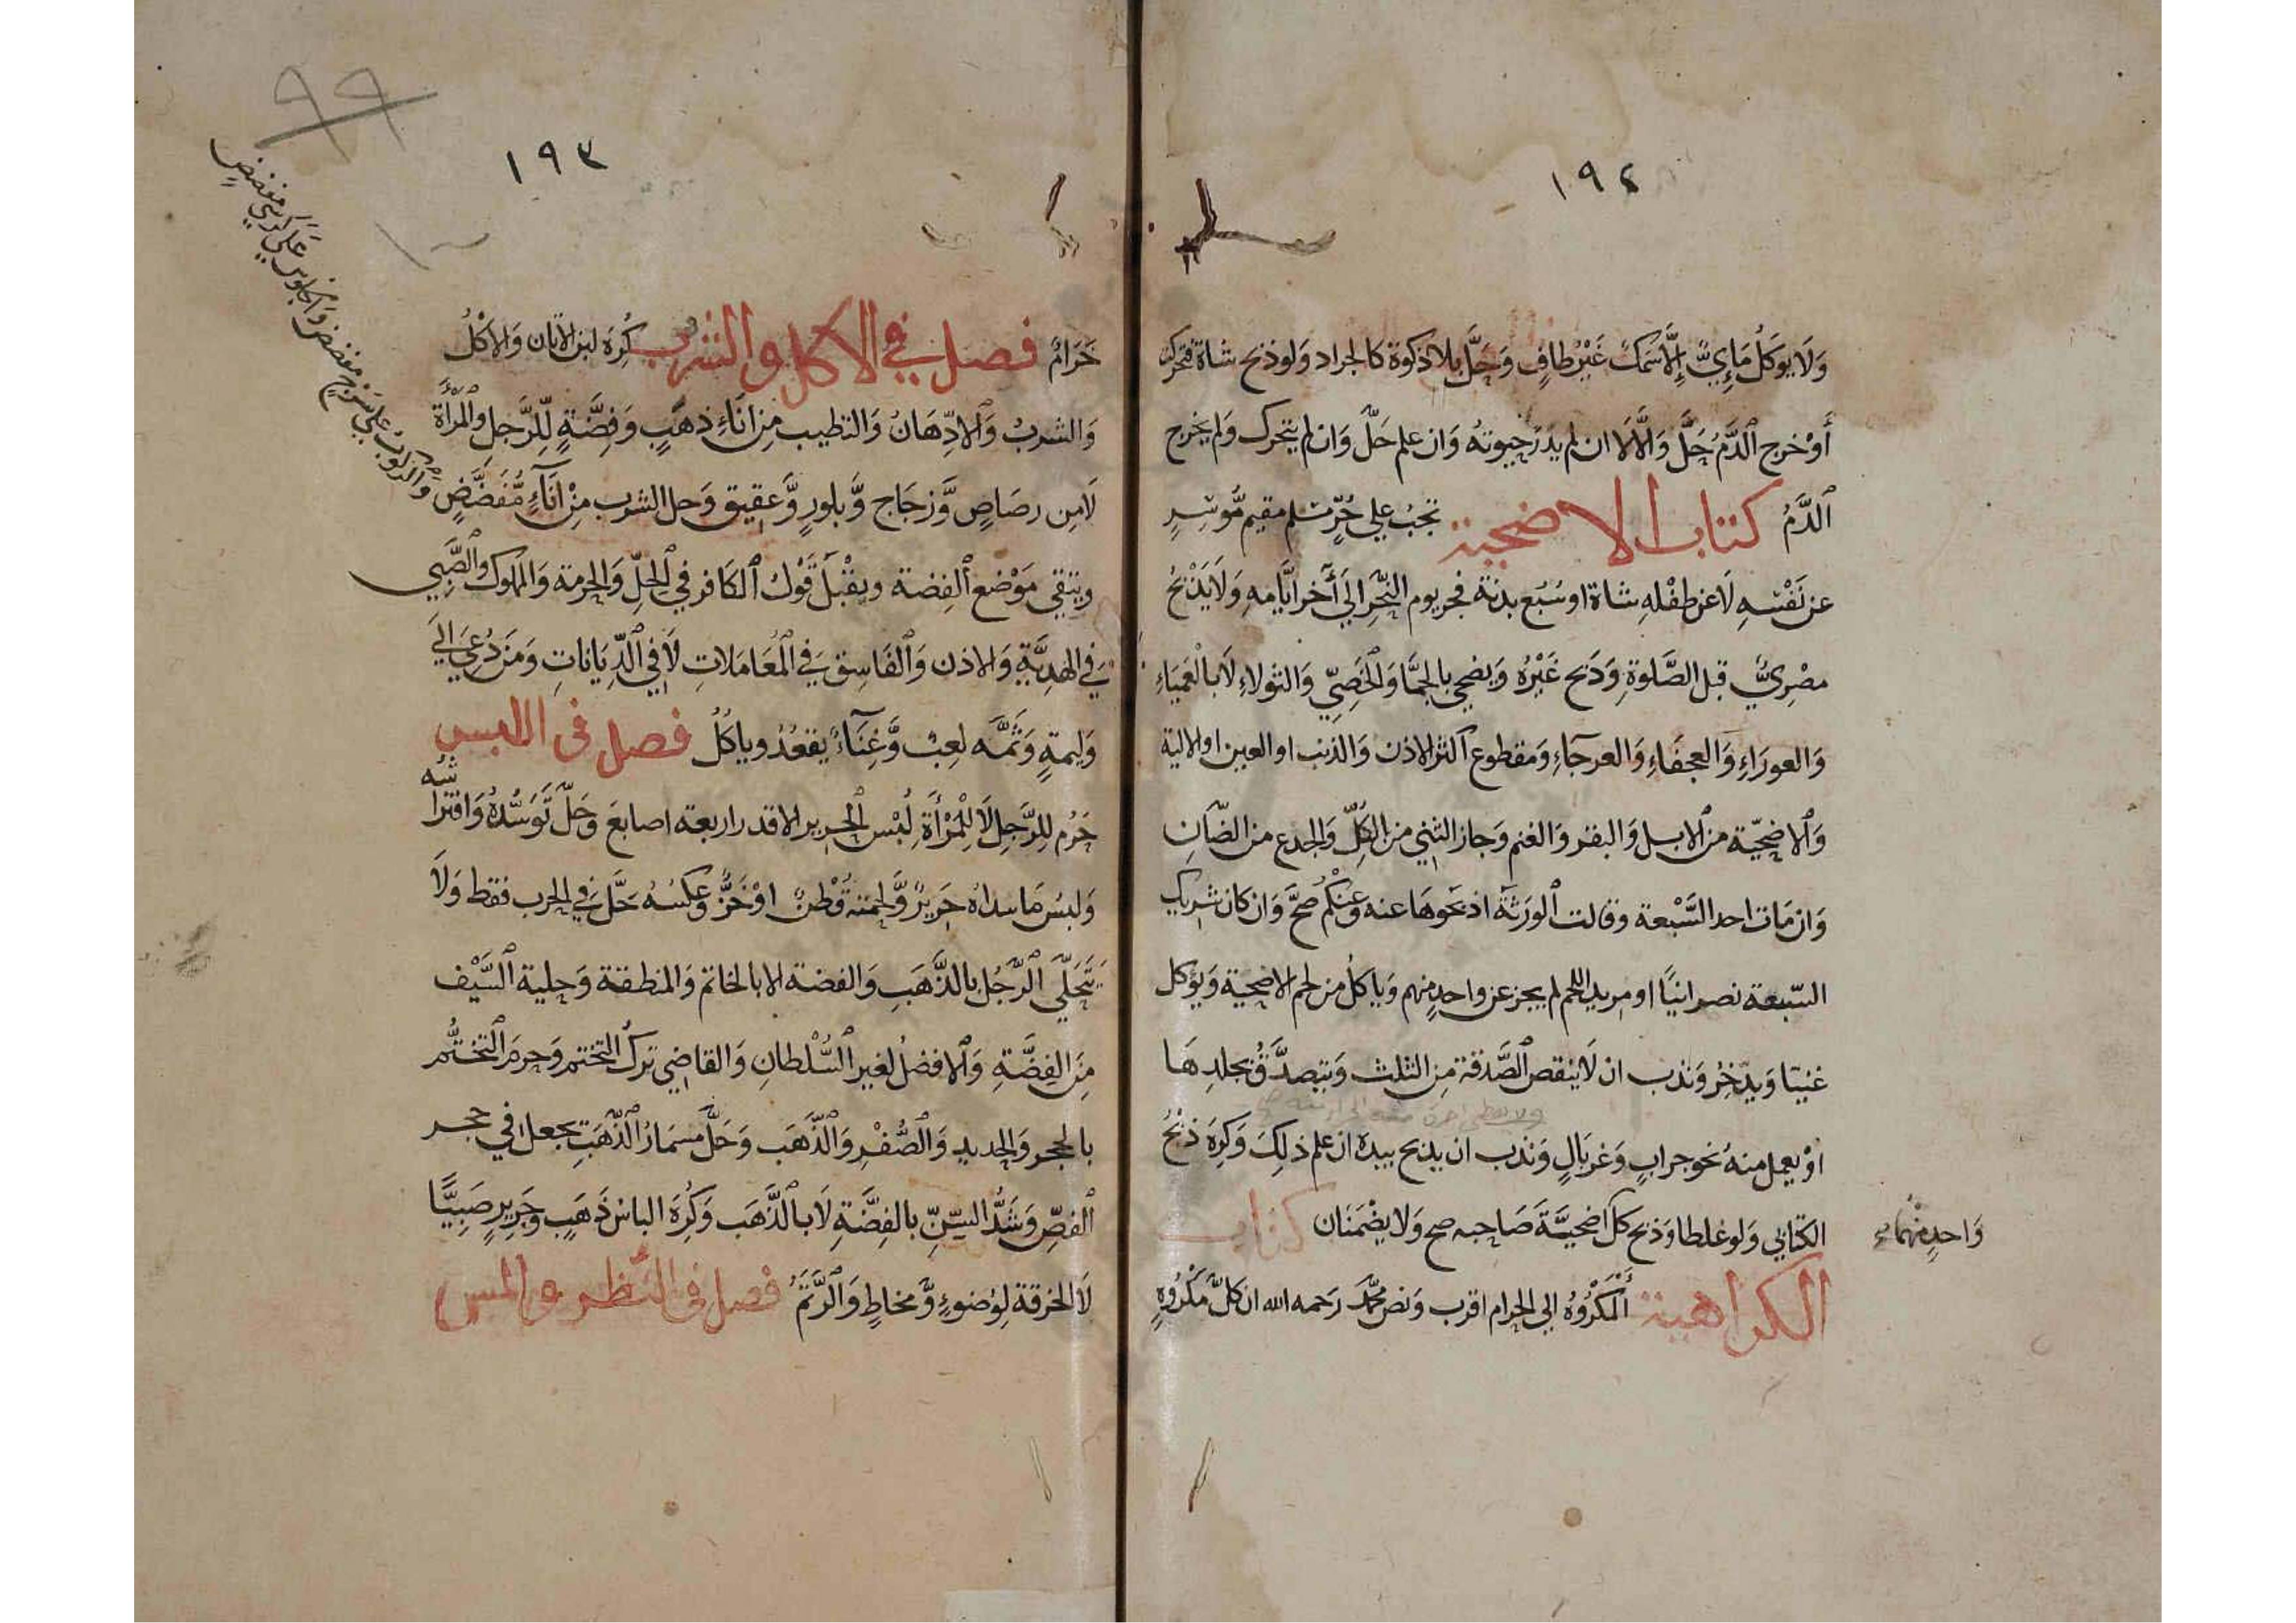 ١٩٢
وَلَا يوكَلُ مَائِيٌّ إِلَّا سَمَكٌ غَيْرُ طافٍ وَحَلَّ بلا ذكوة كالجراد ولو ذبح شاة فتحركت
أَوْ خرج الدَّمُ حَلَّ وَالَّا لَا ان لم يدر حيوته وان علم حَلَّ وان لم يتحرك ولم يخرج
الدَّمُ كتاب الاضحية تجبُ على حُرٍّ مسلم مقيم مُّوسِرٍ
عن نَفْسِهِ لَا عن طفْلهِ شاة او سُبُع بدنة فجر يوم النَّحْر الى آخر ايَّامه وَلَا يَذْبَحُ
مصْرِيٌّ قبل الصَّلوة وَذبح غَيْرُه وَيضحى بالجمَّا وَالْخَصِيِّ وَالثولاءِ لَا بالْعَمْيَاءِ
وَالعورَاءِ وَالعجفَاءِ وَالعرجَاءِ وَمقطوع اكثر الاذن وَالذنب او العين او الالية
وَالاضحيّة من الابل وَالبقر وَالغنم وَجاز الثني من الكلِّ وَالجذع من الضّان
وَان مَات احد السَّبْعة وقالت الورَثَة اذبحوهَا عنه وَعنْكم صَحَّ وَان كان شريك
السّبعة نصرانيًّا او مريد اللحم لم يجز عن واحدٍ منهم وَياكلُ من لحم الاضحية وَيؤكل
غنيّا وَيدّخِرُ وَندب ان لَا ينقص الصَّدقة مِن الثلث وَيتصدَّقُ بجلدِهَا
اوْ يعمل منهُ نحو جرابٍ وَغربَالٍ وَندب ان يذبح بيده ان علم ذلِكَ وَكرِهَ ذبْحُ
الكتابي وَلو غلطا وَذبح كل اضحيَّةَ صَاحبه صح وَلا يضْمَنَان كتاب
وَاحدٍ منْهما
الكراهية المَكْرُوهُ الى الحرام اقرب وَنص محمَّد رَحمه الله ان كلَّ مَكْرُوهٍ
٩٩
١٩٣
حَرَامٌ فصل في الاكل والشرب كُرِهَ لبن الاتان وَالاكْلُ
وَالشربُ وَالادِّهَانُ وَالتطيب مِن انَاءِ ذهَبٍ وَفِضَّةٍ لِّلرَّجل وَالْمَرْأَة
لَا مِن رصَاصٍ وَّزجَاج وَّبلورٍ وَّعقيق وَحل الشرب مِنْ اناءٍ مُّفَضَّضٍ
وَالركوب على سرج مفضض وَالجلوس على كرسي مفضض
ويتقى مَوْضع الفِضة ويقْبَلُ قَوْلُ الكَافر في الحلّ وَالحرمة وَالمملوك وَالصَّبِي
في الهديَّةِ وَالاذن وَالفَاسِق في الْمعَامَلات لَا في الدِّيانَاتِ وَمَن دُعىَ الى
وَليمةٍ وَثَمَّه لعِبٌ وَّغِنَاءٌ يقعُدُ وياكُلُ فصل فى اللبس
حَرُم للرَّجل لَا للْمَرْأَةِ لُبْس الحرير الا قدر اربعة اصابعَ وَحَلَّ تَوَسُّدُهُ وَافترا
شه
وَلبسُ مَا سداه حَرِيرٌ وَّلحمته قُطْنٌ اوْ خَزٌّ وَّعكسُهُ حَلَّ في الحرب فقط وَلَا
يَتَحَلَّى الرَّجُل بالذَّهَبِ وَالفضة الا بالخاتم وَالمنطقة وَحلية السَّيْف
مِنَ الفِضَّةِ وَالافضلُ لغير السُّلْطان وَالقاضي تركُ التختم وَحرمَ التخَتُّم
بالحجر وَالحديدِ وَالصُّفْرِ وَالذّهَب وَحَلَّ مسمارُ الذّهَبِ يجعل في حجر
الفصِّ وَشَدُّ السِّنِّ بالفِضَّةِ لَا بالذَّهَب وَكُرِهَ الباسُ ذَهَبٍ وَحَرِيرٍ صَبِيًّا
لَا الخرقة لِوُضوءٍ وَّمخاطٍ وَالرَّتَمُ فصل فى النّظر والمس